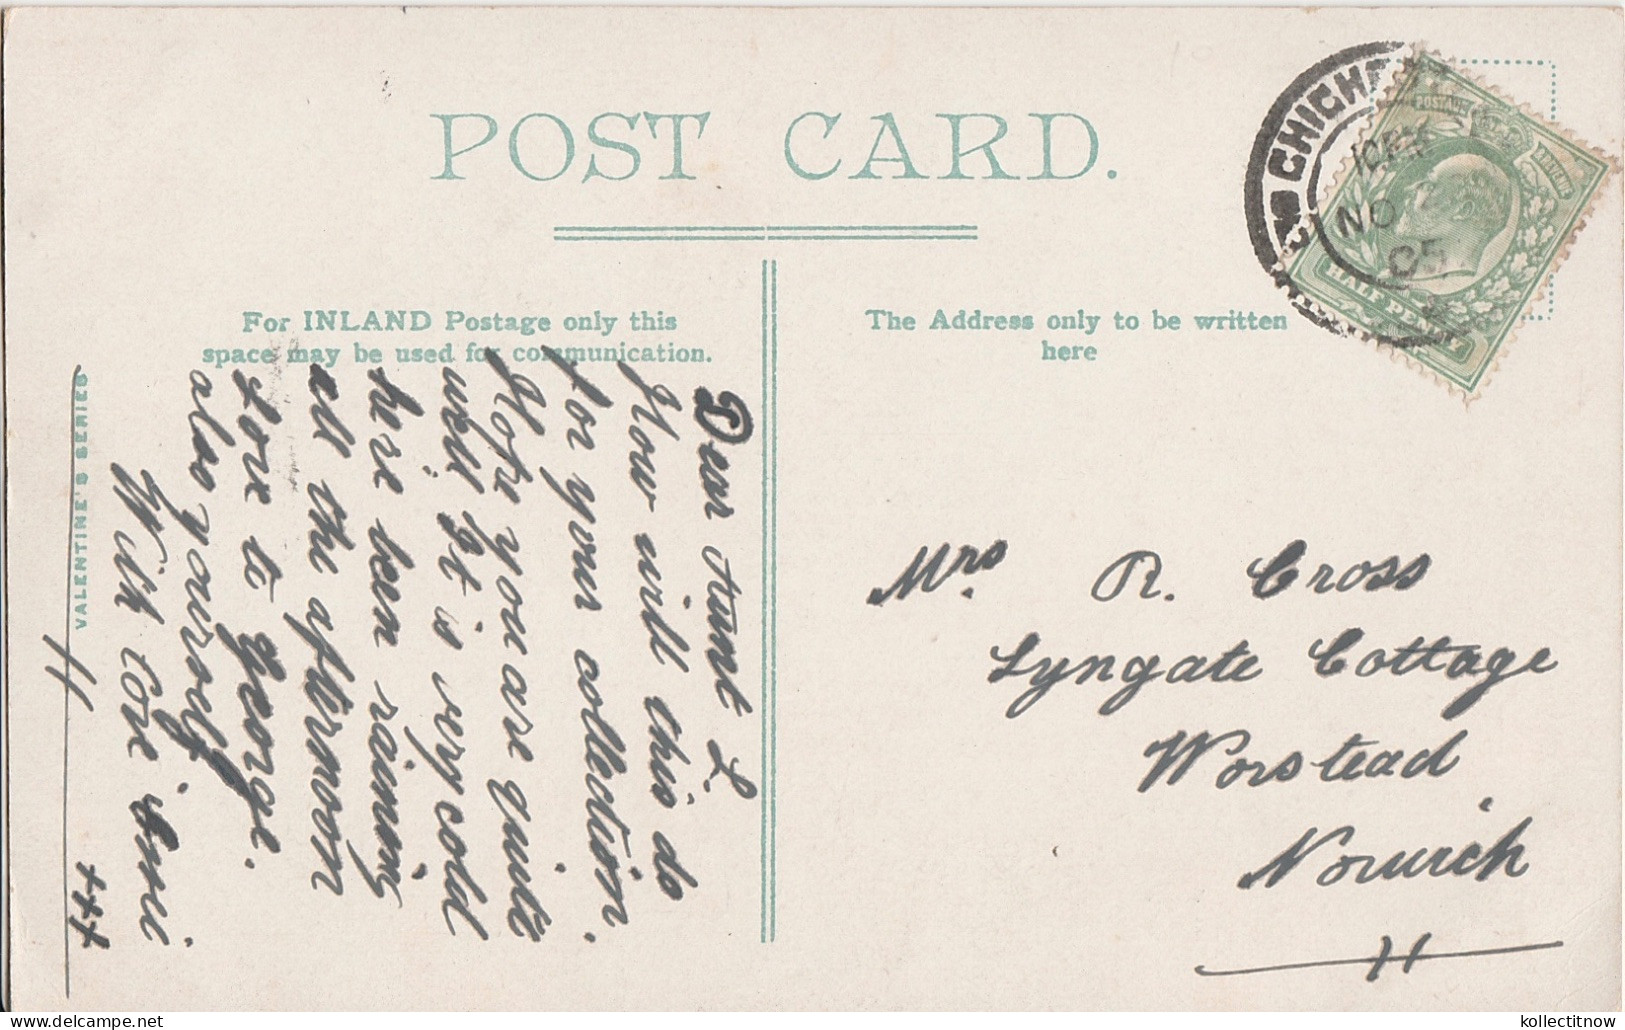 POST CARD.
For INLAND Postage only this
space may be used for communication.
The Address only to be written
here
VALENTINE'S SERIES
Dear Aunt L.
How will this do
for your collection.
Hope you are quite
well It is very cold
here been raining
all the afternoon
Love to George.
also yourself
With love
+++
Mrs. R. Cross
Lyngate Cottage
Worstead
Norwich
POSTAGE REVENUE
HALF PENNY
NO 2
05
kollectitnow